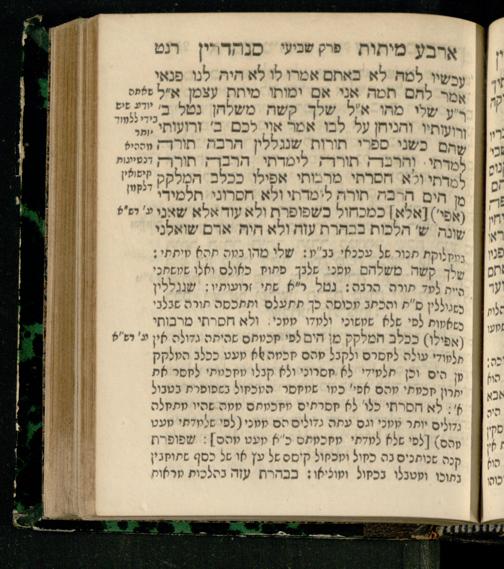 ארבע מיתות פרק שביעי סנהדרין רנט
עכשיו למה לא באתם אמרו לו לא היה לנו פנאי
אמר להם תמה אני אם ימותו מיתת עצמן א"ל
ר"ע שלי מהו א"ל שלך קשה משלהן נטל ב'
זרועותיו והניחן על לבו אמר אוי לכם ב' זרועותי
שהם כשני ספרי תורות שנגללין הרבה תורה
למדתי והרבה תורה לימדתי הרבה תורה
למדתי ולא חסרתי מרבותי אפילו ככלב המלקק
מן הים הרבה תורה לימדתי ולא חסרוני תלמידי
(אפי') [אלא] כמכחול בשפופרת ולא עוד אלא שאני
שונה ש' הלכות בבהרת עזה ולא היה אדם שואלני
שאתה
יודע שיש
בידי ללמוד
יותר
מההיא
דנטיעות
קישואין
דלקמן
עי' רש"א
במחלוקת תנור של עכנאי בב"מ: שלי מהו במה תהא מיתתי:
שלך קשה משלהם מפני שלבך פתוח כאולם ואלו שמשתני
היית למד תורה הרבה: נטל ר"א שתי זרועותיו: שנגללין
כשגוללין ס"ת והכתב מכוסה כך תתעלם ותתכסה תורה שבלבי
כשאמות לפי שלא שמשוני ולמדו ממני: ולא חסרתי מרבותי
(אפילו) ככלב המלקק מן הים לפי חכמתם שהיתה גדולה אין
תלמודי עולה לחסרם ולקבל מהם חכמה אלא מעט ככלב המלקק
מן הים וכן תלמידי לא חסרוני ולא קבלו מחכמתי לחסר את
יתרון חכמתי מהם אפי' כמו שמחסר המכחול בשפופרת בטבול
א': לא חסרתי כלו' לא חסרתים מחכמתם ממה שהיו מתחלה
גדולים יותר ממני וגם עתה גדולים הם ממני (לפי שלמדתי מעט
מהם) [לפי שלא למדתי מחכמתם כ"א מעט מהם]: שפופרת
קנה שנותנים בה כחול ומכחול קיסם של עץ או של כסף שתוחבין
בתוכו ומטבלו בכחול ומוציאו: בבהרת עזה בהלכות מראות
עי' רש"א